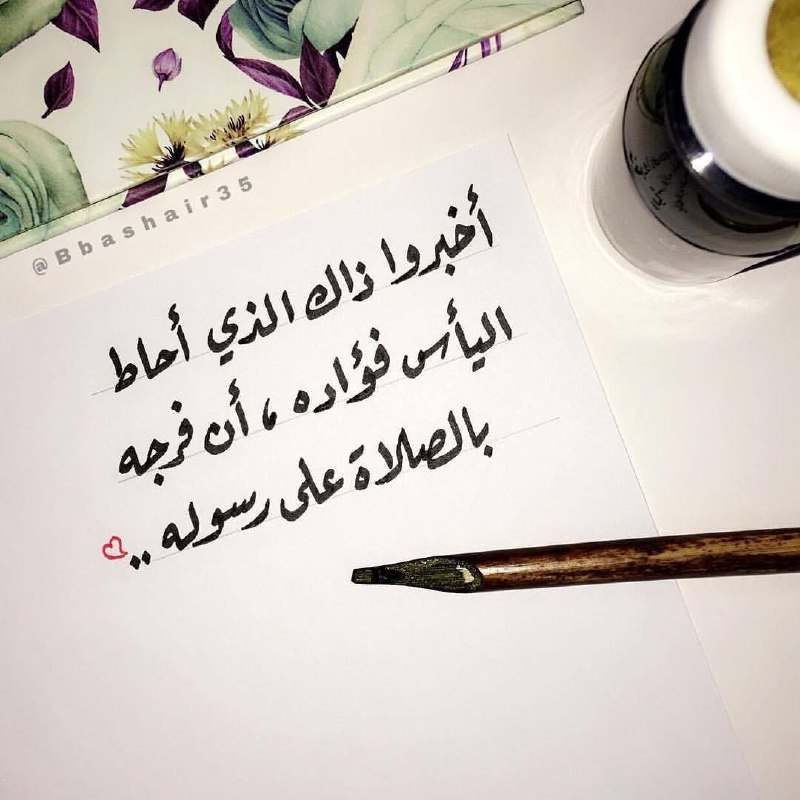 @Bbashair35
أخبروا ذاك الذي أحاط
اليأس فؤاده ، أن فرجه
بالصلاة على رسوله ..